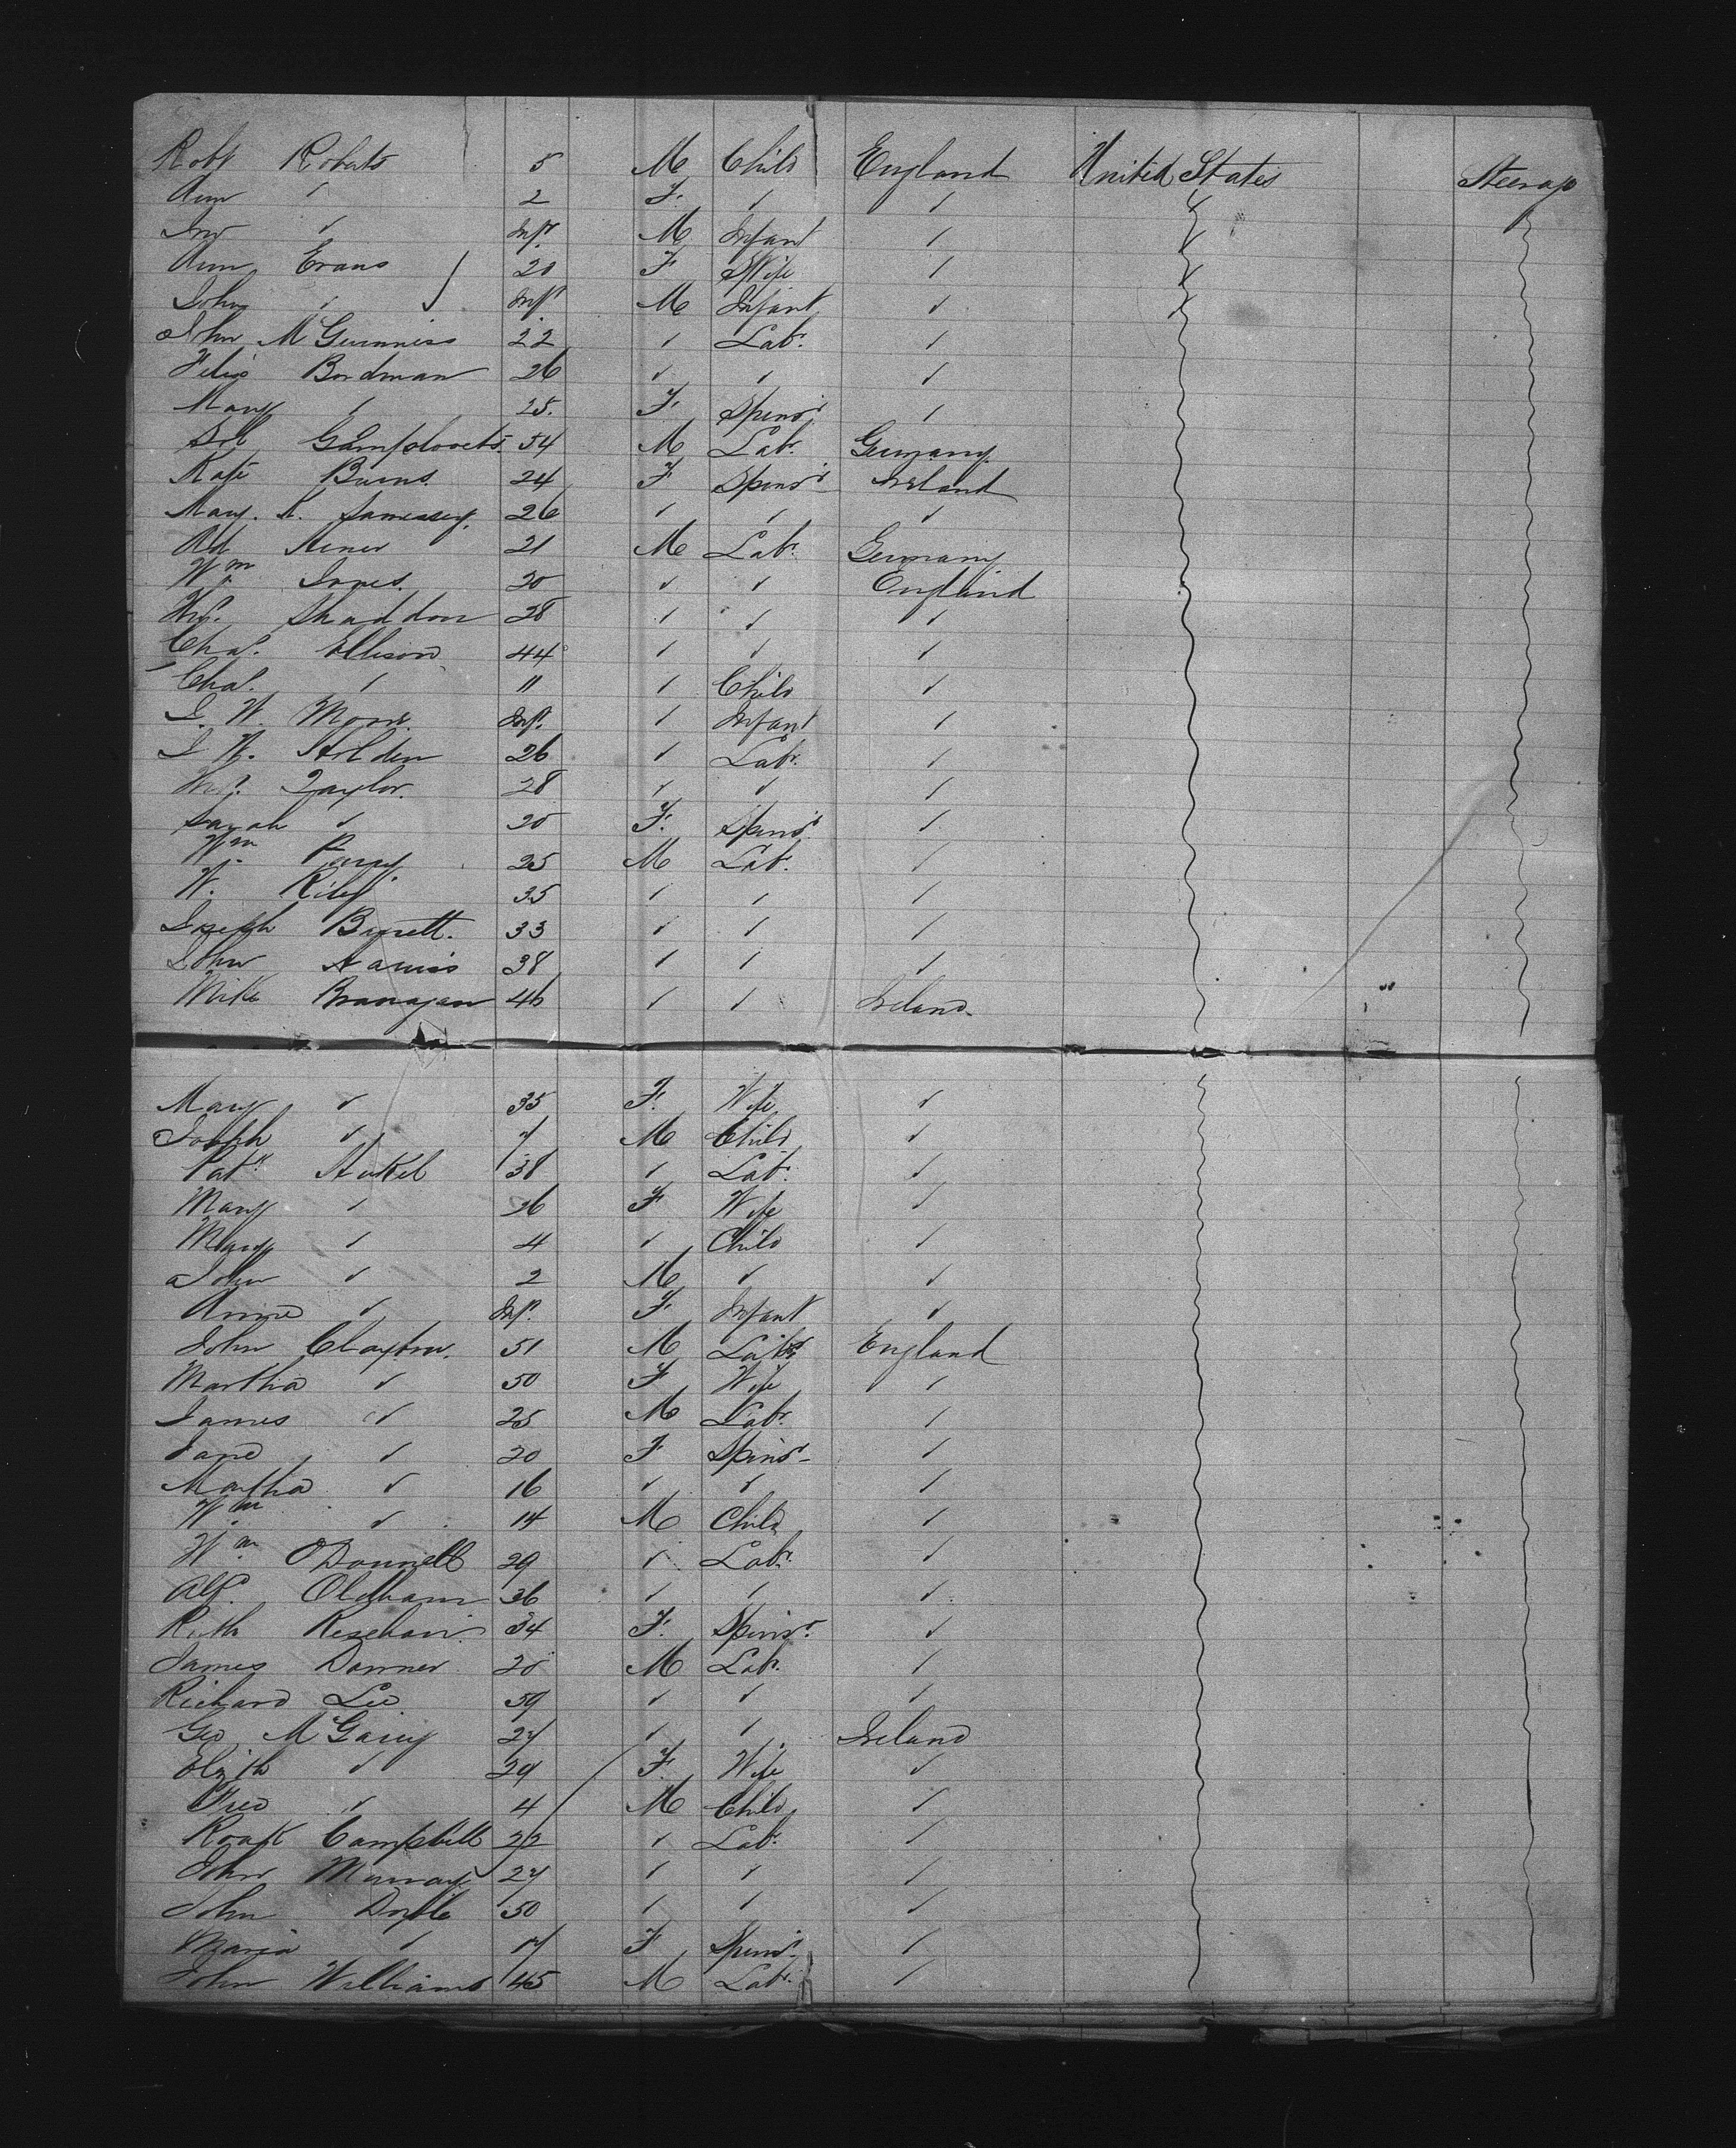 Robt Roberts 5 M Child England United States Steerage
Ann " 2 F. " "
Jno " Inft. M Infant "
Ann Evans 20 F Wife "
John " Inft M Infant "
John McGuinniss 22 " Labr. "
Felix Bordman 26 " " "
Mary " 25. F. Spinsr "
Sol 54 M Labr. Germany.
Kate Burns. 24 F Spinsr Ireland
Mary. A. 26 " " "
Ad 21 M Labr. Germany
Wm. Jones. 20 " " England
Shaddon 28 " " "
Chas. Ellison 44 " " "
Chas. " 11 " Child "
J. W. Inft. " Infant "
J W. Holden 26 " Labr. "
Taylor. 28 " " "
Sarah " 20 F. Spinsr. "
Wm. Parry. 25 M Labr. "
W. Riley 35 " " "
Joseph Barrett. 33 " " "
John Harris 38 " " "
Mike Branagan 46 " " Ireland.
Mary " 35 F. Wife "
Joseph " 7 M Child "
Patk. 38 " Labr. "
Mary " 26 F Wife "
Mary " 4 " Child "
John " 2 M " "
Annie " Inft. F Infant "
John Clayton. 51 M Labr England
Martha " 50 F Wife "
James " 25 M Labr. "
Jane " 20 F Spinsr "
Martha " 16 " " "
Wm. " 14 M Child "
Wm. O'Donnell 29 " Labr. "
Alfd. Oldham 36 " " "
Ruth 34 F. Spinsr. "
James Danner 28 M Labr. "
Richard Lee 59 " " "
Geo McGarry 27 " " Ireland
Elizth " 29 F Wife "
Fred " 4 M Child "
Campbell 22 " Labr. "
John Murray 27 " " "
John Doyle 50 " " "
Maria " 17 F Spinsr. "
John Williams 45 M Labr. "